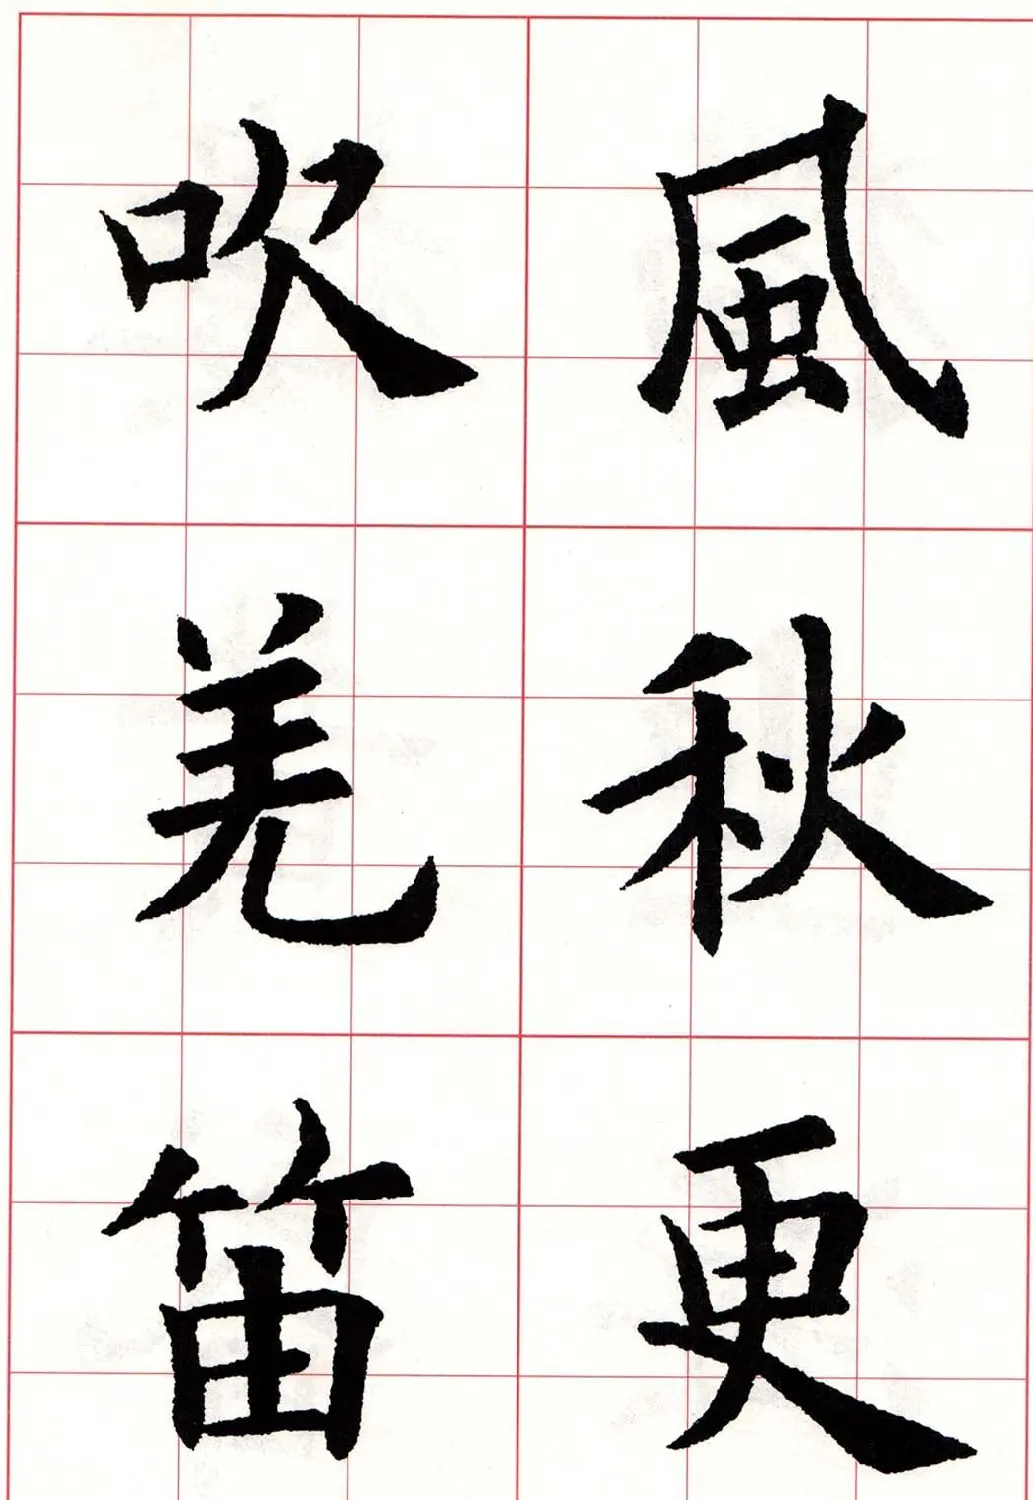 風秋更
吹羌笛